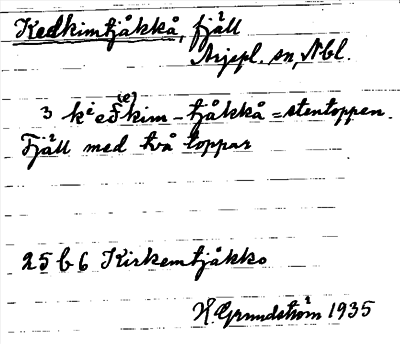 Kedkimtjåkkå, fjäll
Arjepl. sn, Nbl.
3 kieδ(e)kim-tjåkkå = stentoppen.
Fjäll med två toppar
25 b 6 Kirkemtjåkko
H. Grundström 1935